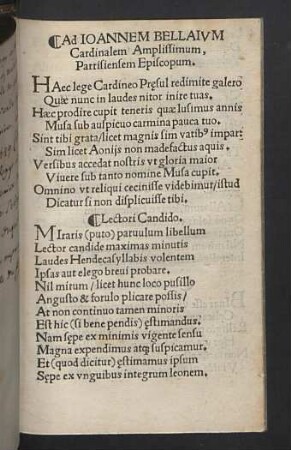 ¶Ad IOANNEM BELLAIVM
Cardinalem Amplissimum,
Parrisiensem Episcopum.
HAec lege Cardineo Pręsul redimite galero
Quæ nunc in laudes nitor inire tuas.
Hæc prodire cupit teneris quæ lusimus annis
Musa sub auspicuo carmina pauca tuo.
Sint tibi grata/licet magnis sim vatibꝰ impar:
Sim licet Aonijs non madefactus aquis.
Versibus accedat nostris vt gloria maior
Viuere sub tanto nomine Musa cupit.
Omnino vt reliqui cecinisse videbimur/istud
Dicatur si non displicuisse tibi.
¶Lectori Candido.
MIraris (puto) paruulum libellum
Lector candide maximas minutis
Laudes Hendecasyllabis volentem
Ipsas aut elego breui probare.
Nil mirum/licet hunc loco pusillo
Angusto & forulo plicare possis/
At non continuo tamen minoris
Est hic (si bene pendis) ęstimandus.
Nam sępe ex minimis vigente sensu
Magna expendimus atqꝫ suspicamur.
Et (quod dicitur) ęstimamus ipsum
Sępe ex vnguibus integrum leonem.